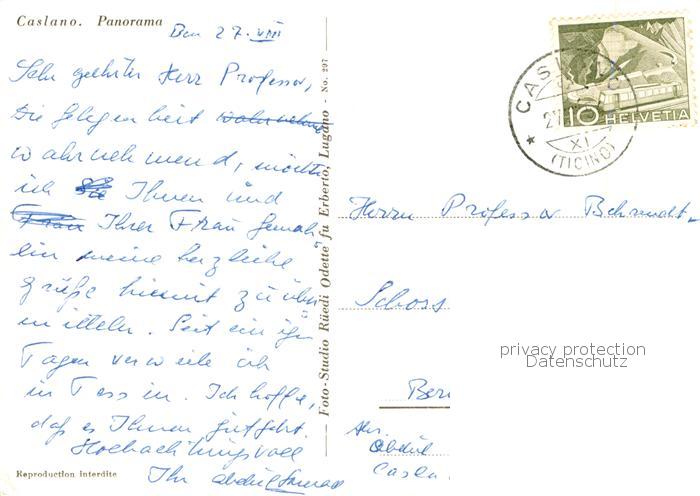 Caslano. Panorama
Den 27. VIII
Sehr geehrter Herr Professor,
Die Gelegenheit wahrnehme
wahrnehmend, möchte
ich Sie Ihnen und
Frau Ihrer Frau Gemahl"
ein meine herzliche
Grüße hiermit zu über
mitteln. Seit einige
Tagen verweile ich
in Tessin. Ich hoffe,
daß es Ihnen gut geht.
Hochachtungsvoll
Ihr
Reproduction interdite
Foto-Studio Rüedi Odette fu Erberto, Lugano - No. 297
CASLANO
27
XI
(TICINO)
10 HELVETIA
Herrn Professor
Schoss
Ber
Abs.
Abdul
Casla
privacy protection
Datenschutz